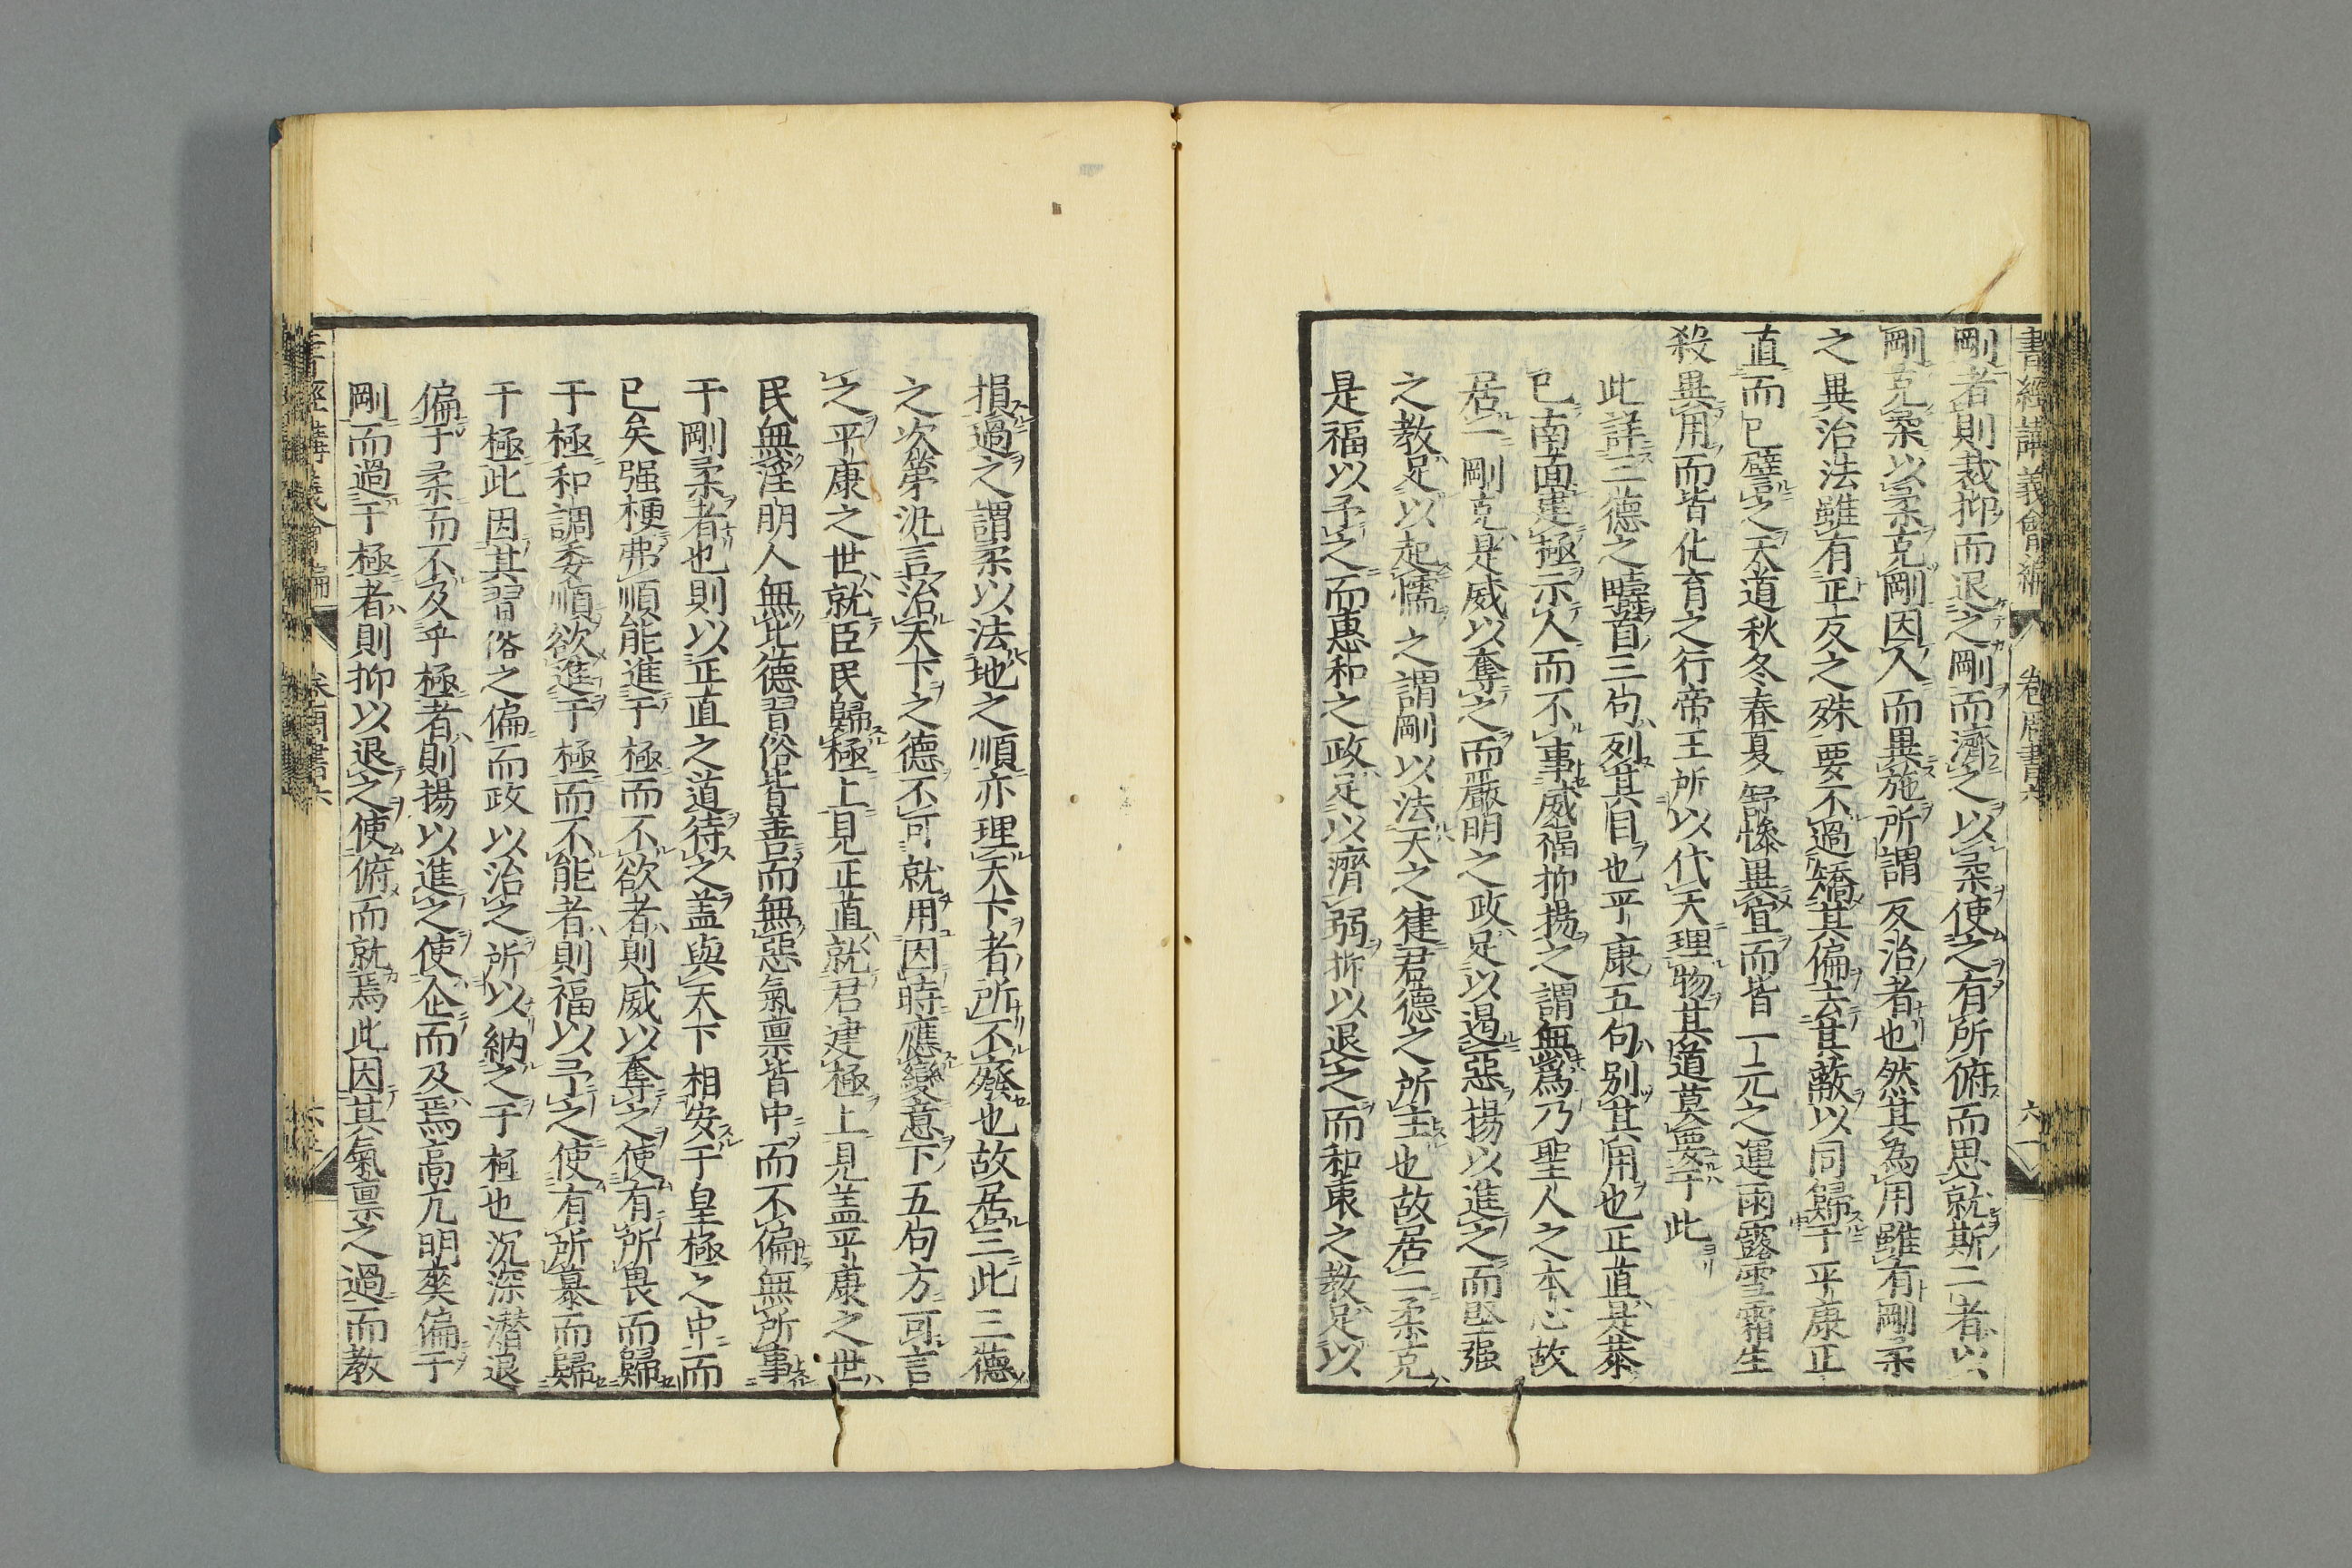 書經講義會編 卷 周書六 六十
剛者則裁抑而退之剛而濟之以柔使之有所俯而思就斯二者以
剛克柔以柔克剛因人而異施所謂反治者也然其為用雖有剛柔
之異治法雖有正反之殊要不過矯其偏去其蔽以同歸于平康正
直而已譬之天道秋冬春夏舒慘異宜而皆一元之運雨露雪霜生
殺異用而皆化育之行帝王所以代天理物其道莫要于此
此詳三德之疇首三句列其目也平康五句別其用也正直是恭
已南面建極示人而不事威福抑揚之謂無為乃聖人之本心故
居一剛克是威以奪之而嚴明之政足以遏惡揚以進之而堅强
之教足以起懦之謂剛以法天之健君德之所主也故居二柔克
是福以予之而惠和之政足以濟弱抑以退之而和衷之教足以
損過之謂柔以法地之順亦理天下者所不廢也故居三此三德
之次第汎言治天下之德不可就用因時應變意下五句方可言
之平康之世就臣民歸極上見正直就君建極上見盖平康之世
民無淫朋人無比德習俗皆善而無惡氣禀皆中而不偏無所事
于剛柔者也則以正直之道待之盖與天下相安于皇極之中而
已矣强梗弗順能進于極而不欲者則威以奪之使有所畏而歸
于極和調委順欲進于極而不能者則福以予之使有所慕而歸
于極此因其習俗之偏而政以治之所以納之于極也沉深潜退
偏于柔而不及乎極者則揚以進之使企而及焉高亢明爽偏于
剛而過于極者則抑以退之使俯而就焉此因其氣禀之過而教
書經講義會編 周書六